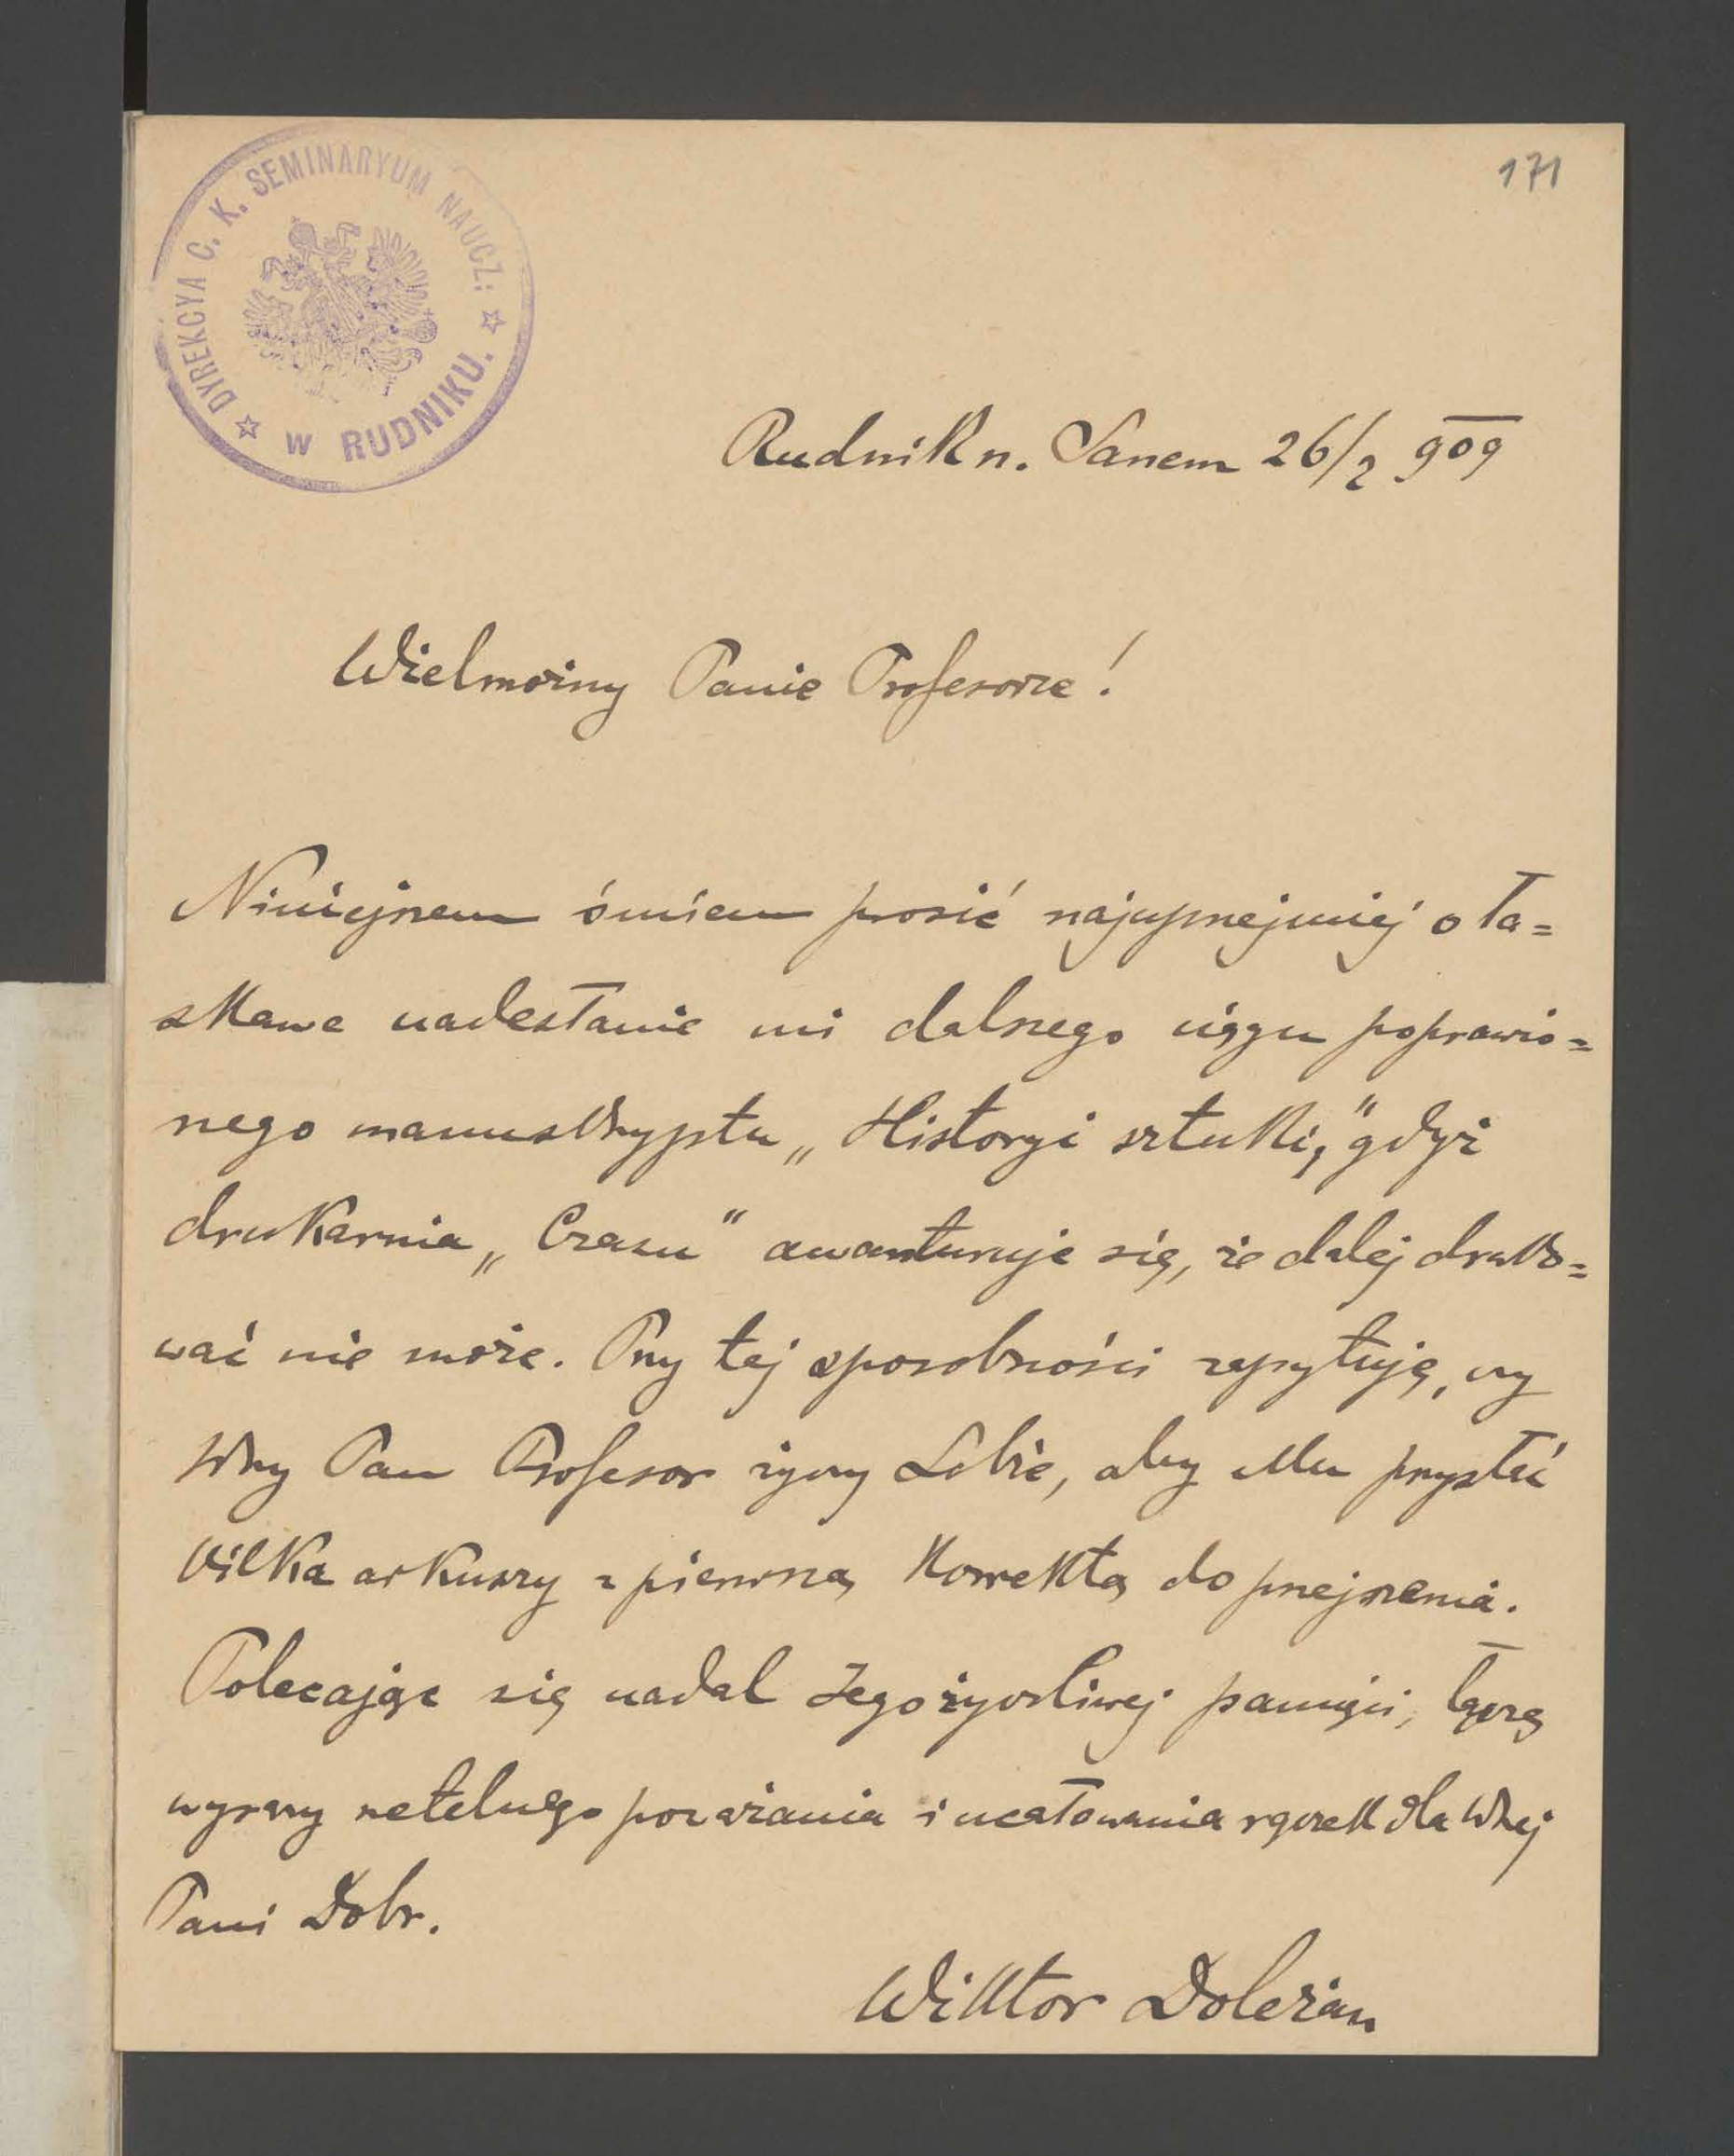 171
DYREKCYA C. K. SEMINARYUM NAUCZ:
W RUDNIKU.
Rudnik n. Sanem 26/2 909
Wielmożny Panie Profesorze!
Niniejszem śmiem prosić najuprzejmiej o ła=
skawe nadesłanie mi dalszego ciągu poprawio=
nego manuskryptu „Historyi sztuki," gdyż
drukarnia „Czasu" awanturuje się, że dalej druko=
wać nie może. Przy tej sposobności zapytuję, czy
Wny Pan Profesor życzy Sobie, aby Mu przysłać
kilka arkuszy z pierwszą korrektą do przejrzenia.
Polecając się nadal Jego życzliwej pamięci, łączę
wyrazy rzetelnego poważania i ucałowania rączek dla Wnej
Pani Dobr.
Wiktor Doleżan